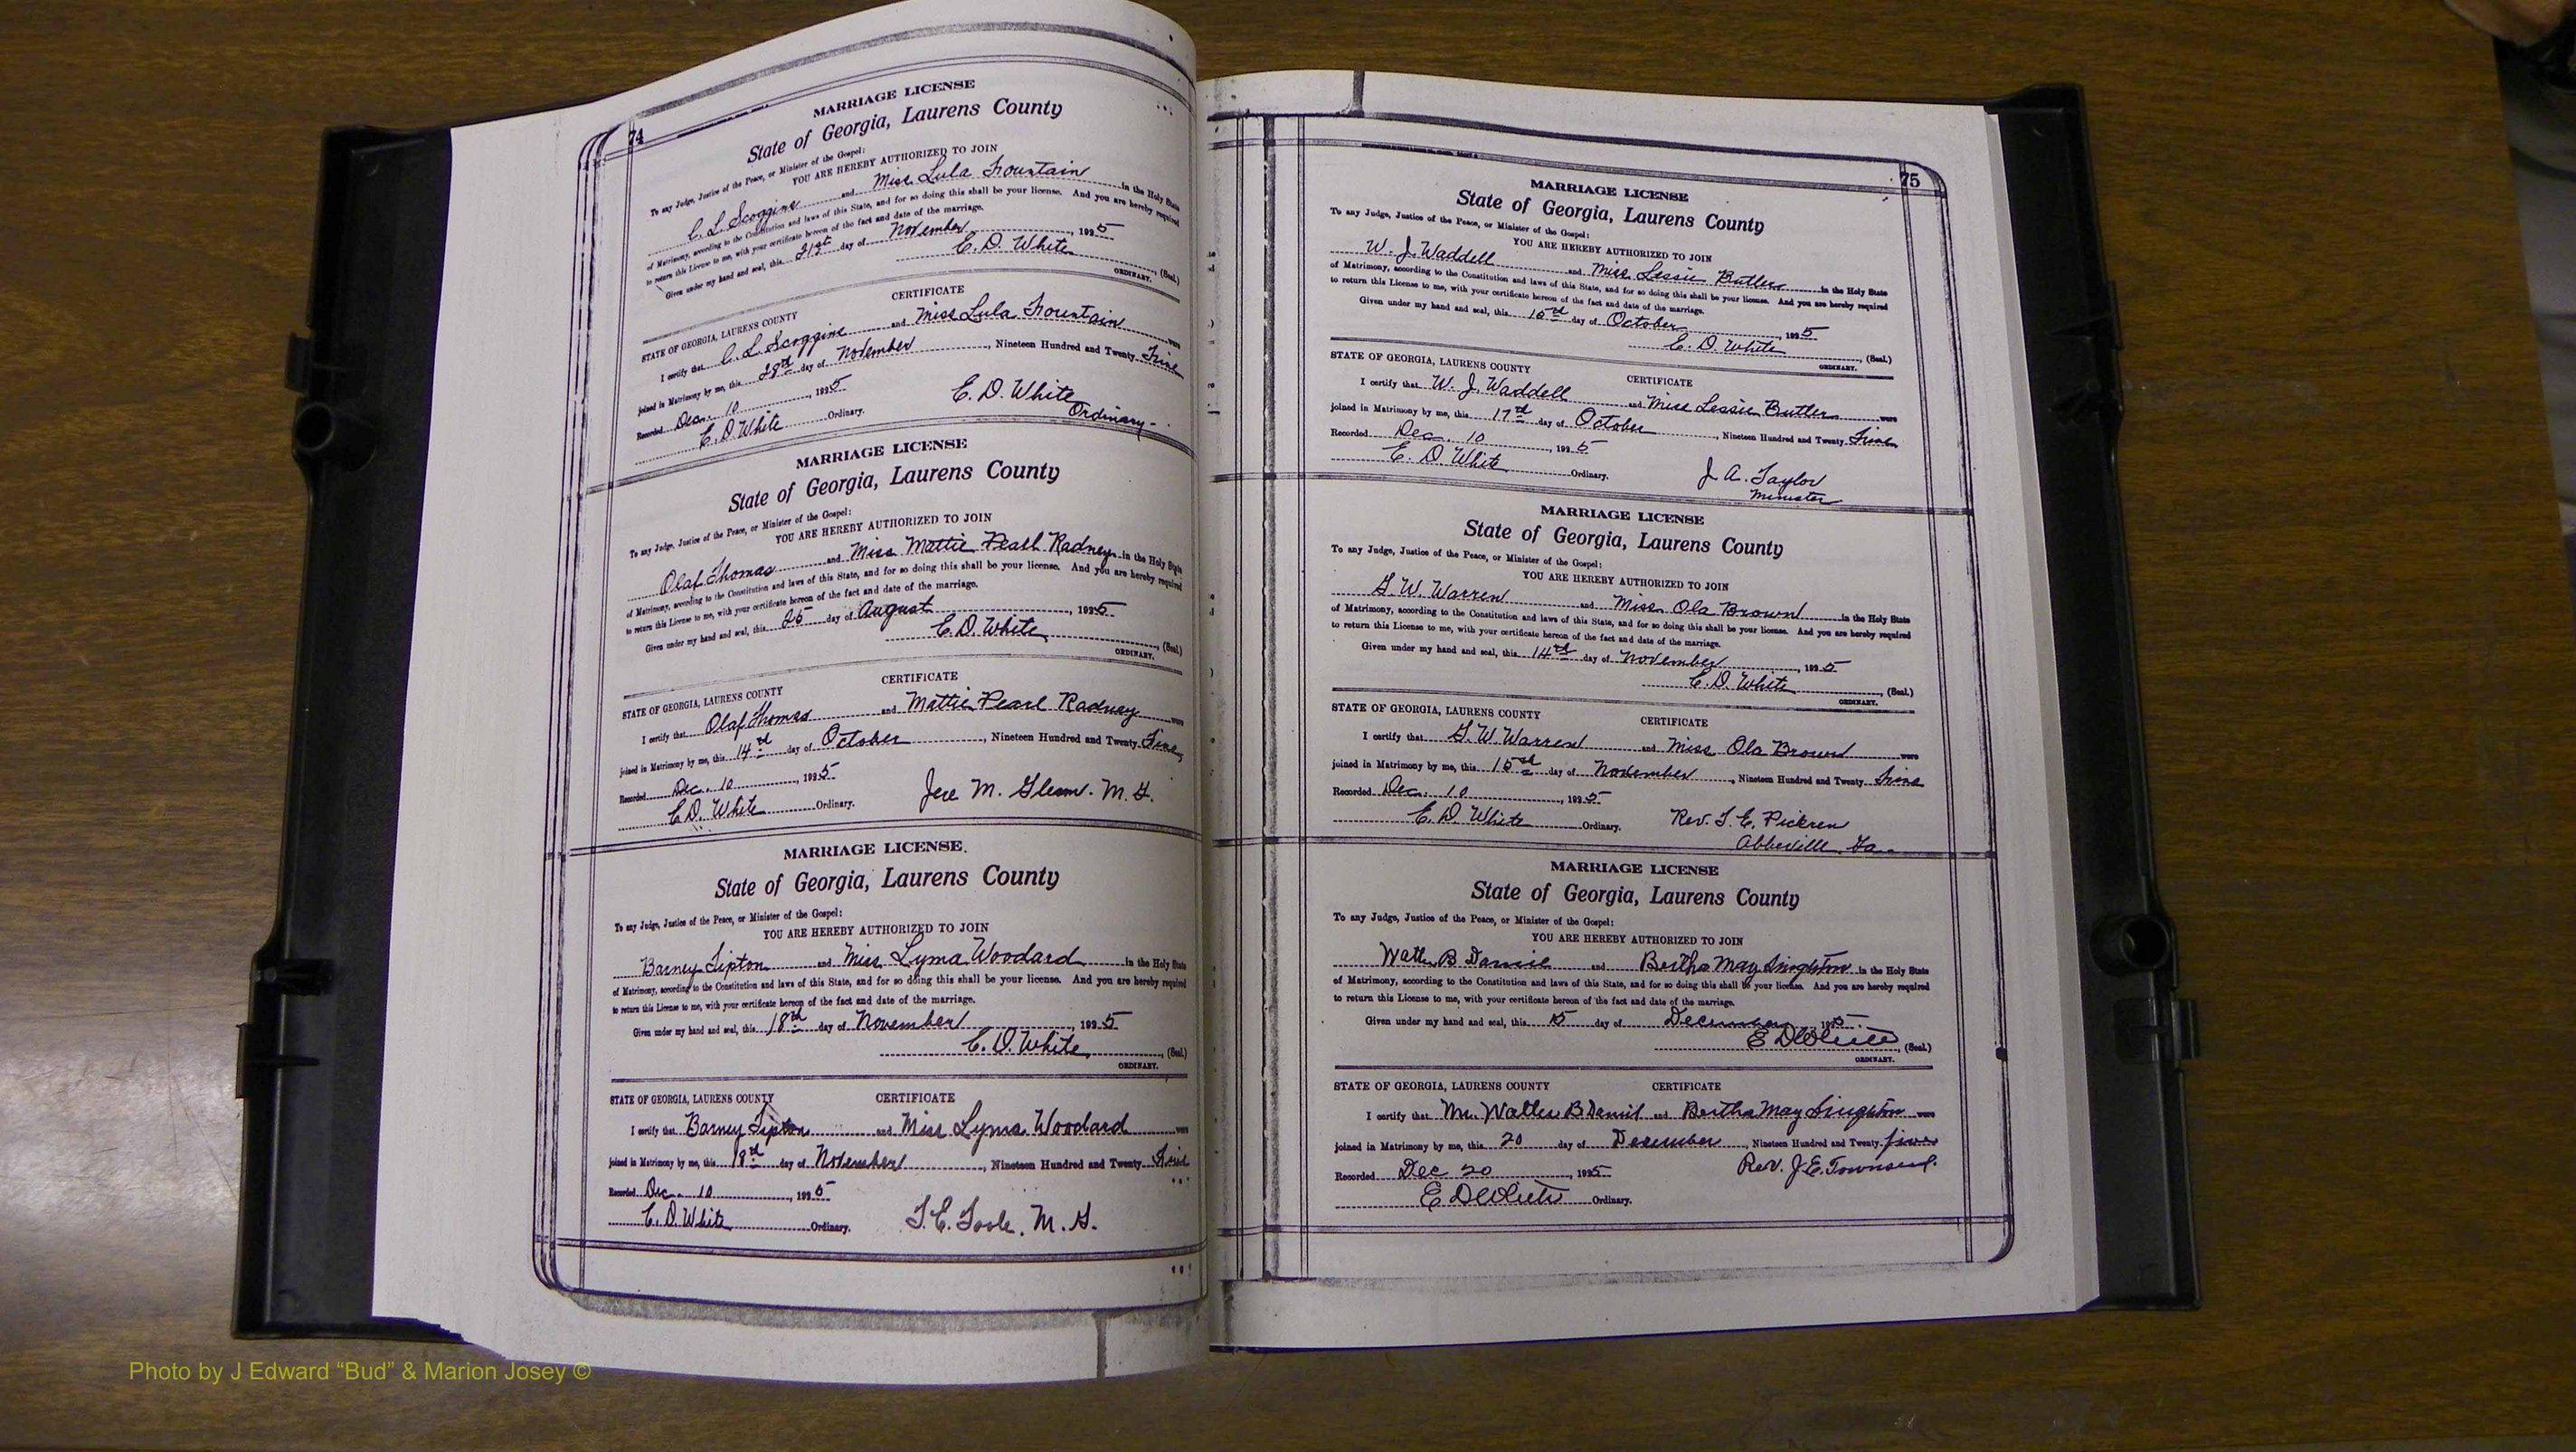 74
MARRIAGE LICENSE
State of Georgia, Laurens County
To any Judge, Justice of the Peace, or Minister of the Gospel:
YOU ARE HEREBY AUTHORIZED TO JOIN
C. L. Scoggins and Miss Lula Fountain in the Holy State
of Matrimony, according to the Constitution and laws of this State, and for so doing this shall be your license. And you are hereby required
to return this License to me, with your certificate hereon of the fact and date of the marriage.
Given under my hand and seal, this 21st day of November, 1925
E. D. White, (Seal.)
ORDINARY.
CERTIFICATE
STATE OF GEORGIA, LAURENS COUNTY
I certify that C. L. Scoggins and Miss Lula Fountain were
joined in Matrimony by me, this 28th day of November, Nineteen Hundred and Twenty Five
Recorded Dec. 10, 1925
E. D. White Ordinary.
E. D. White
Ordinary-
MARRIAGE LICENSE
State of Georgia, Laurens County
To any Judge, Justice of the Peace, or Minister of the Gospel:
YOU ARE HEREBY AUTHORIZED TO JOIN
Olaf Thomas and Miss Mattie Pearl Radney in the Holy State
of Matrimony, according to the Constitution and laws of this State, and for so doing this shall be your license. And you are hereby required
to return this License to me, with your certificate hereon of the fact and date of the marriage.
Given under my hand and seal, this 25 day of August, 1925
E. D. White, (Seal.)
ORDINARY.
CERTIFICATE
STATE OF GEORGIA, LAURENS COUNTY
I certify that Olaf Thomas and Mattie Pearl Radney were
joined in Matrimony by me, this 14th day of October, Nineteen Hundred and Twenty Five
Recorded Dec. 10, 1925
E. D. White Ordinary.
Jere M. Glenn. M. G.
MARRIAGE LICENSE.
State of Georgia, Laurens County
To any Judge, Justice of the Peace, or Minister of the Gospel:
YOU ARE HEREBY AUTHORIZED TO JOIN
Barney Tipton and Miss Lyma Woodard in the Holy State
of Matrimony, according to the Constitution and laws of this State, and for so doing this shall be your license. And you are hereby required
to return this License to me, with your certificate hereon of the fact and date of the marriage.
Given under my hand and seal, this 18th day of November, 1925
E. D. White, (Seal.)
ORDINARY.
STATE OF GEORGIA, LAURENS COUNTY CERTIFICATE
I certify that Barney Tipton and Miss Lyma Woodard were
joined in Matrimony by me, this 18th day of November, Nineteen Hundred and Twenty Five
Recorded Dec. 10, 1925
E. D. White Ordinary.
T. E. Toole. M. G.
75
MARRIAGE LICENSE
State of Georgia, Laurens County
To any Judge, Justice of the Peace, or Minister of the Gospel:
YOU ARE HEREBY AUTHORIZED TO JOIN
W. J. Waddell and Miss Lessie Butler in the Holy State
of Matrimony, according to the Constitution and laws of this State, and for so doing this shall be your license. And you are hereby required
to return this License to me, with your certificate hereon of the fact and date of the marriage.
Given under my hand and seal, this day of October, 1925
E. D. White, (Seal.)
ORDINARY.
STATE OF GEORGIA, LAURENS COUNTY
CERTIFICATE
I certify that W. J. Waddell and Miss Lessie Butler were
joined in Matrimony by me, this 17th day of October, Nineteen Hundred and Twenty Five
Recorded Dec. 10, 1925
E. D. White Ordinary.
J. A. Taylor
Minister
MARRIAGE LICENSE
State of Georgia, Laurens County
To any Judge, Justice of the Peace, or Minister of the Gospel:
YOU ARE HEREBY AUTHORIZED TO JOIN
G. W. Warren and Miss Ola Brown in the Holy State
of Matrimony, according to the Constitution and laws of this State, and for so doing this shall be your license. And you are hereby required
to return this License to me, with your certificate hereon of the fact and date of the marriage.
Given under my hand and seal, this 14th day of November, 1925
E. D. White, (Seal.)
ORDINARY.
STATE OF GEORGIA, LAURENS COUNTY
CERTIFICATE
I certify that G. W. Warren and Miss Ola Brown were
joined in Matrimony by me, this 15th day of November, Nineteen Hundred and Twenty Five
Recorded Dec. 10, 1925
E. D. White Ordinary.
Rev. T. E. Pickren
Abbeville Ga.
MARRIAGE LICENSE
State of Georgia, Laurens County
To any Judge, Justice of the Peace, or Minister of the Gospel:
YOU ARE HEREBY AUTHORIZED TO JOIN
B Daniel and Bertha May Singleton in the Holy State
of Matrimony, according to the Constitution and laws of this State, and for so doing this shall be your license. And you are hereby required
to return this License to me, with your certificate hereon of the fact and date of the marriage.
Given under my hand and seal, this 15 day of December, 1925.
E D White, (Seal.)
ORDINARY.
STATE OF GEORGIA, LAURENS COUNTY CERTIFICATE
I certify that Mr. Walter B Daniel and Bertha May Singleton were
joined in Matrimony by me, this 20 day of December, Nineteen Hundred and Twenty five
Recorded Dec 20, 1925
Rev. J. E. Townsend.
E D White Ordinary.
Photo by J Edward “Bud” & Marion Josey ©